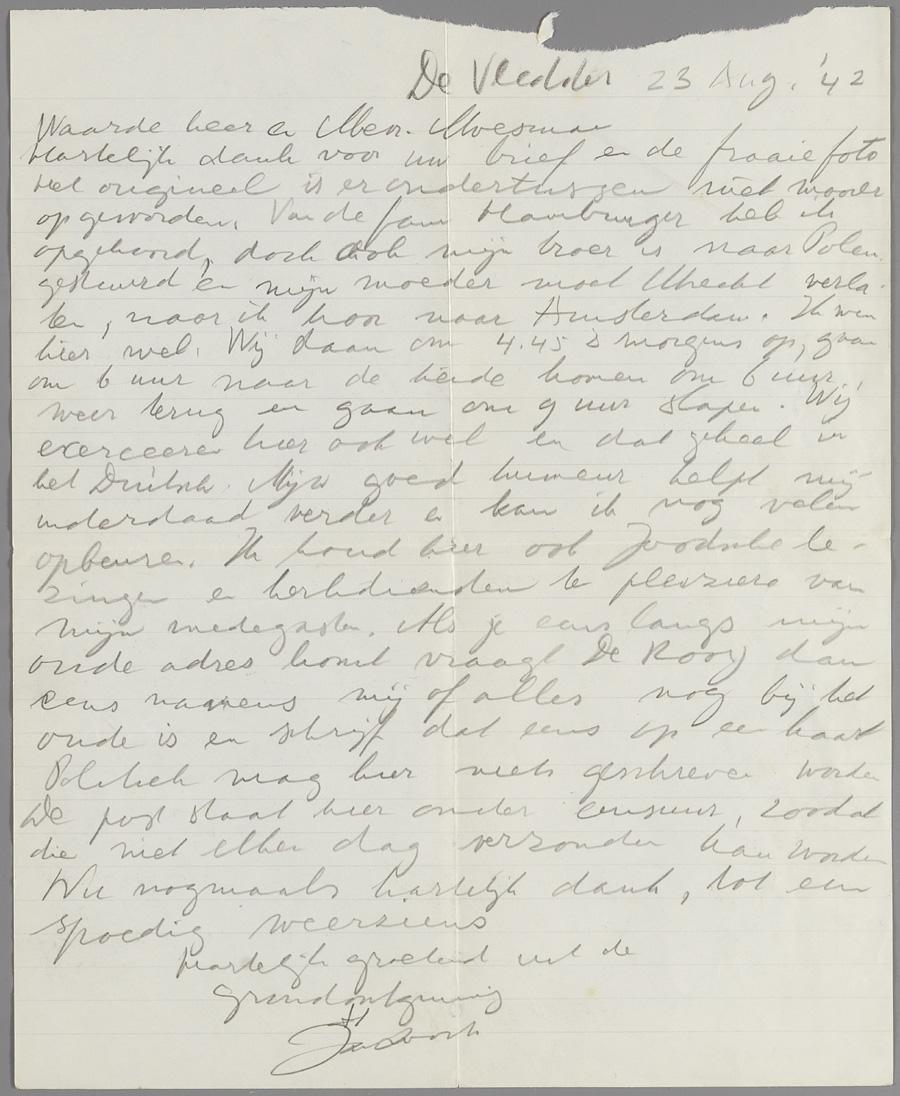 De Vledder 23 Aug. '42
Waarde heer en Mevr. Moesman
Hartelijk dank voor uw brief en de fraaie foto
Het origineel is er ondertusschen niet mooier
op geworden. Van de fam Hamburger heb ik
opgehoord, doch ook mijn broer is naar Polen
gestuurd en mijn moeder moet Utrecht verla-
ten, naar ik hoor naar Amsterdam. Ik wen
hier wel. Wij staan om 4.45 's morgens op, gaan
om 6 uur naar de heide komen om 6 uur
weer terug en gaan om 9 uur slapen. Wij
exerceeren hier ook wel en dat geheel in
het Duitsch. Mijn goed humeur helpt mij
inderdaad verder en kan ik nog velen
opbeuren. Ik houd hier ook Joodsche le-
zingen en kerkdiensten te plezeire van
mijn medegasten. Als je eens langs mijn
oude adres komt vraagt De Rooy dan
eens namens mij of alles nog bij het
oude is en schrijf dat eens op een kaart
Politiek mag hier niets geschreven worden
De post staat hier onder censuur, zoodat
die niet elken dag verzonden kan worden
Nu nogmaals hartelijk dank, tot een
spoedig weerziens
Hartelijk groetend uit de
grondontginning